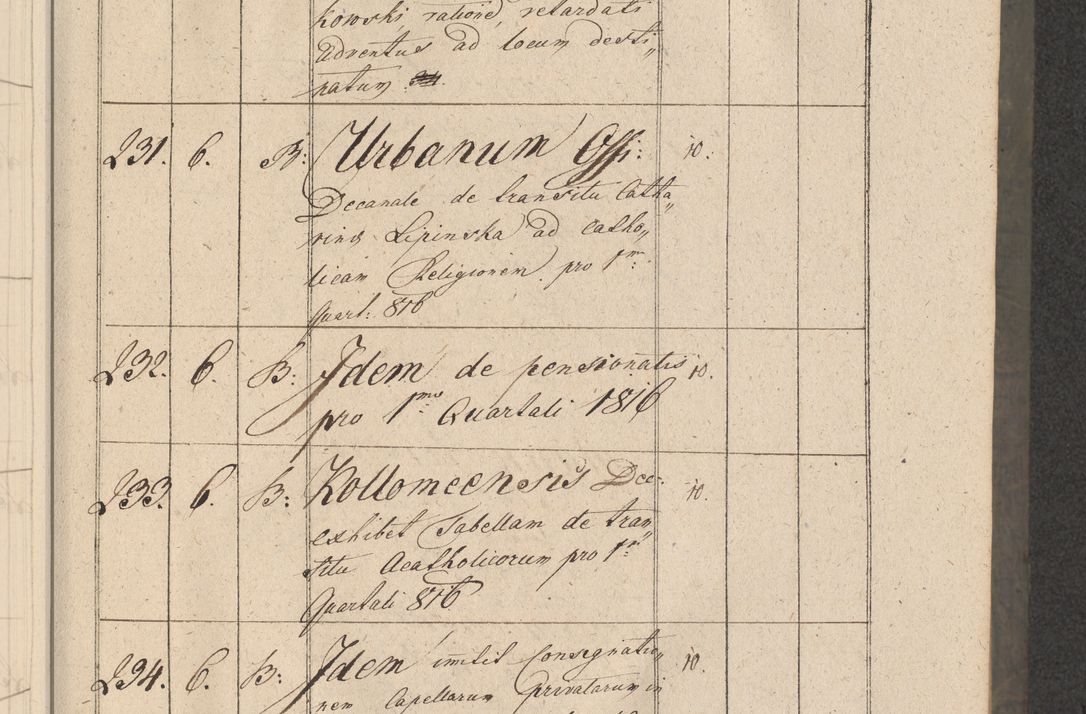 kowski ratione retardati
adventus ad locum desti„
natum
231. 6. B: Urbanum Offi: 10.
Decanale de transitu Catha„
rina Lipinska ad catho„
licam Religionem pro 1m
Quart: 816
232. 6. B: Idem de pensionatis 10.
pro 1mo Quartali 1816
233. 6. B: Kollomeensis Dec: 10.
exhibet Tabellam de tran„
situ Acatholicorum pro 1o
Quartali 816
234. 6. B: Idem im̅itit Consignatio„ 10.
nem Capellarum privatarum in